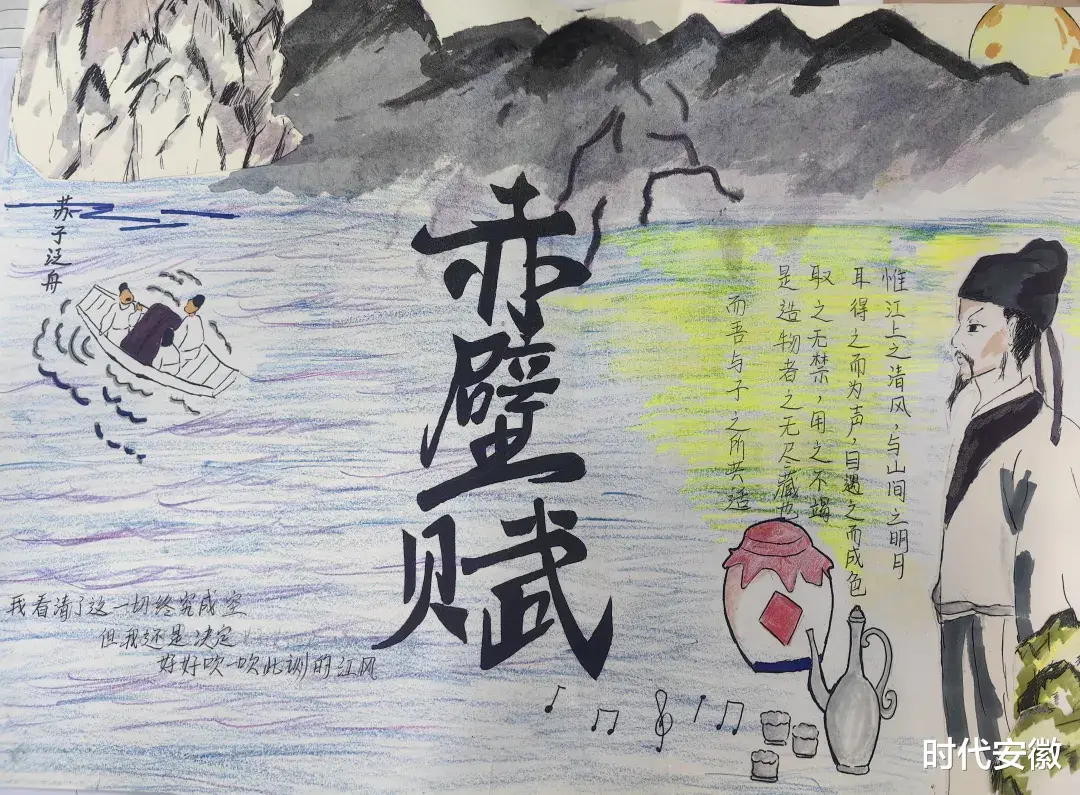 苏子泛舟
赤壁赋
惟江上之清风，与山间之明月
耳得之而为声，目遇之而成色
取之无禁，用之不竭
是造物者之无尽藏也
而吾与子之所共适
我看清了这一切终究成空
但我还是决定
好好吹一吹此刻的江风
时代安徽